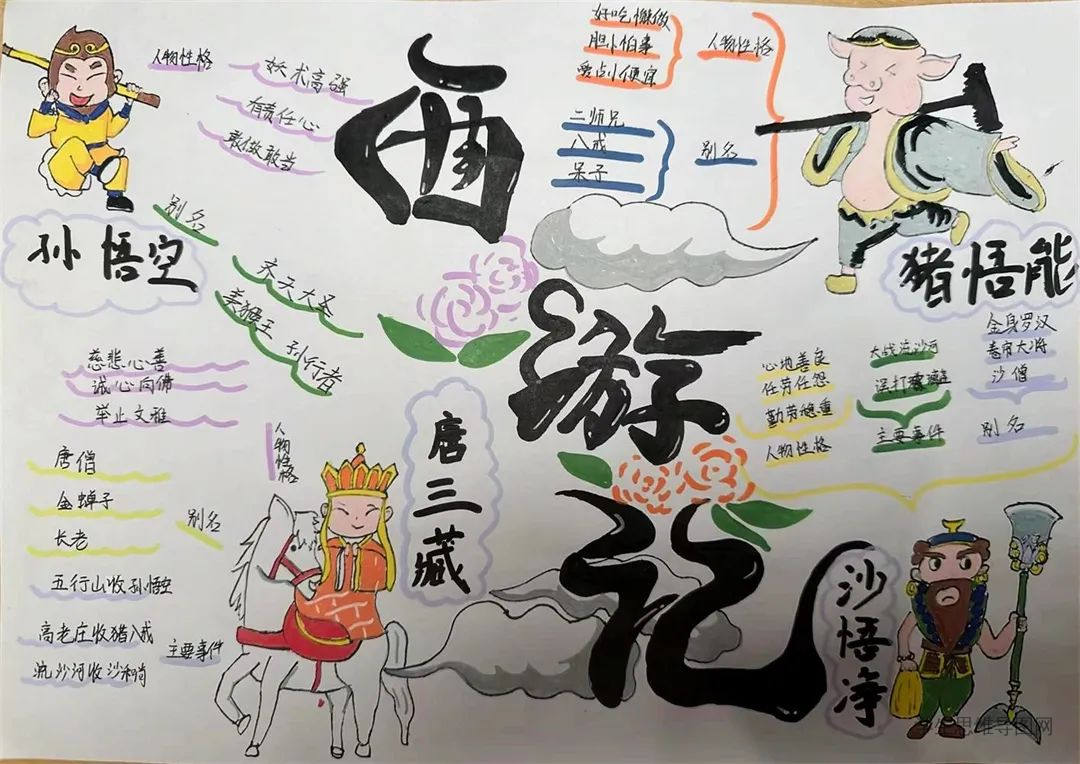 西游记
孙悟空
人物性格
妖术高强
有责任心
敢做敢当
别名
齐天大圣
美猴王 孙行者
猪悟能
人物性格
好吃懒做
胆小怕事
爱占小便宜
别名
二师兄
八戒
呆子
唐三藏
人物性格
慈悲心善
诚心向佛
举止文雅
别名
唐僧
金蝉子
长老
主要事件
五行山收孙悟空
高老庄收猪八戒
流沙河收沙和尚
沙悟净
人物性格
心地善良
任劳任怨
勤劳稳重
主要事件
大战流沙河
别名
金身罗汉
卷帘大将
沙僧
思维导图网